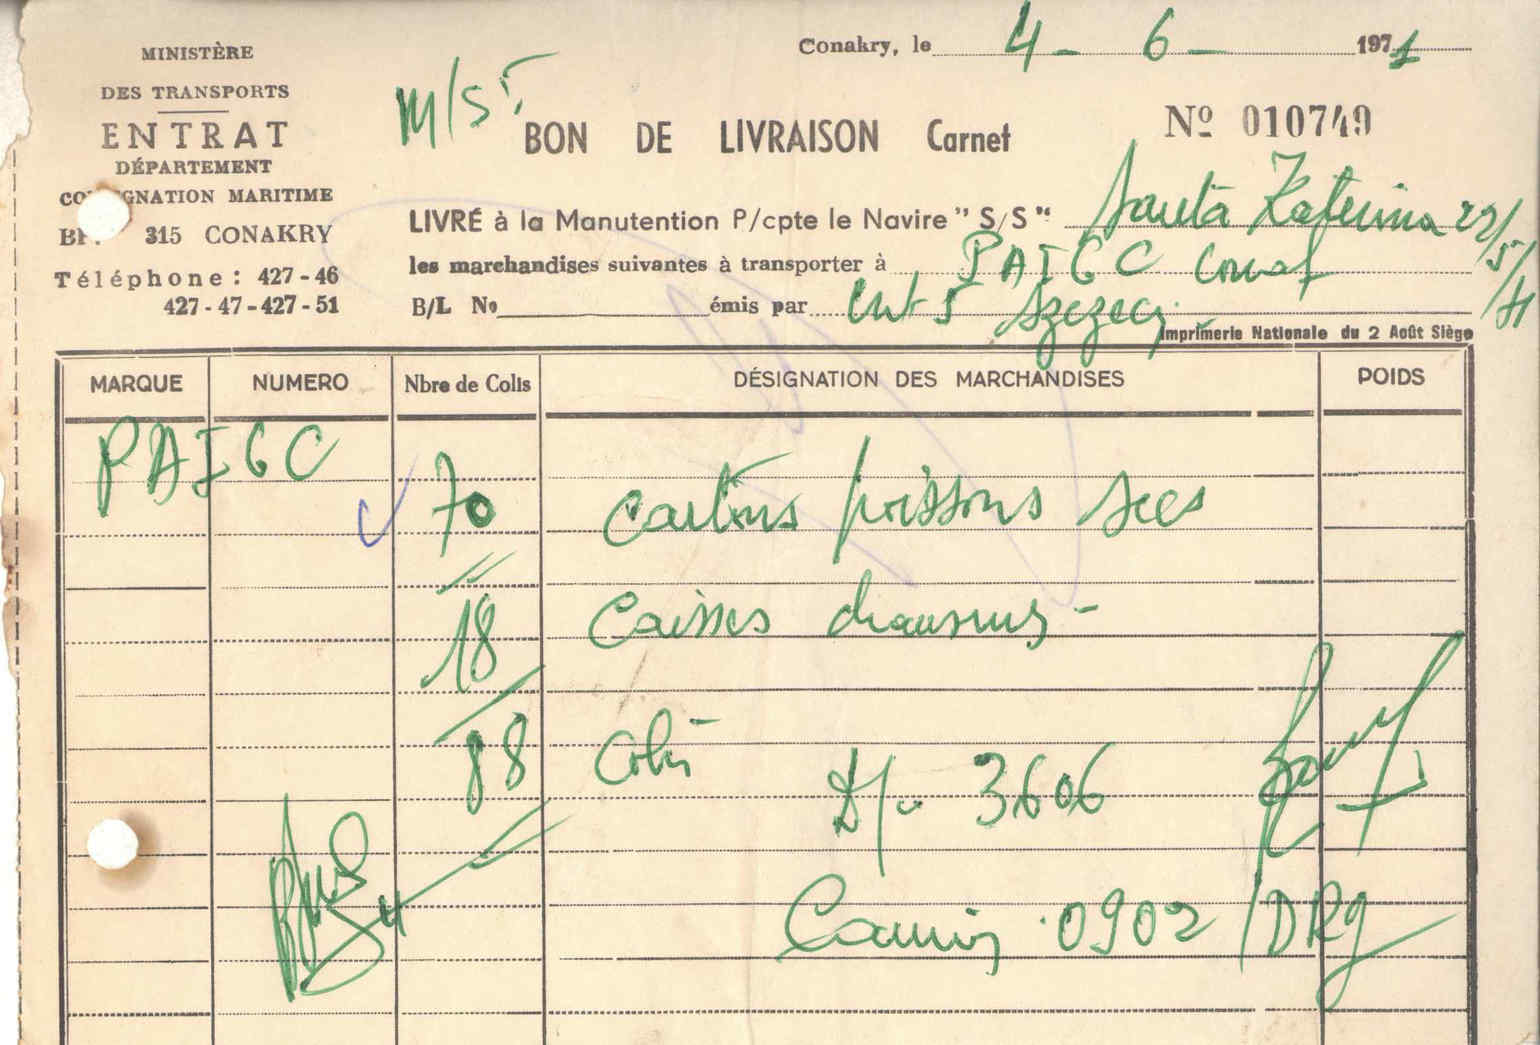 MINISTÈRE
DES TRANSPORTS
ENTRAT
DÉPARTEMENT
CONSIGNATION MARITIME
BP. 315 CONAKRY
Téléphone : 427-46
427-47-427-51
Conakry, le 4-6-1971
M/ST,
BON DE LIVRAISON Carnet
Nº 010749
LIVRÉ à la Manutention P/cpte le Navire " S/S " Santa Katerina 22/5/71
les marchandises suivantes à transporter à PAIGC
B/L No émis par Szczecin
Imprimerie Nationale du 2 Août Siège
MARQUE NUMERO Nbre de Colis DÉSIGNATION DES MARCHANDISES POIDS
PAIGC
70 cartons poissons secs
18 Caisses chaussures-
88 Colis
3606
Camion 0902/DRG